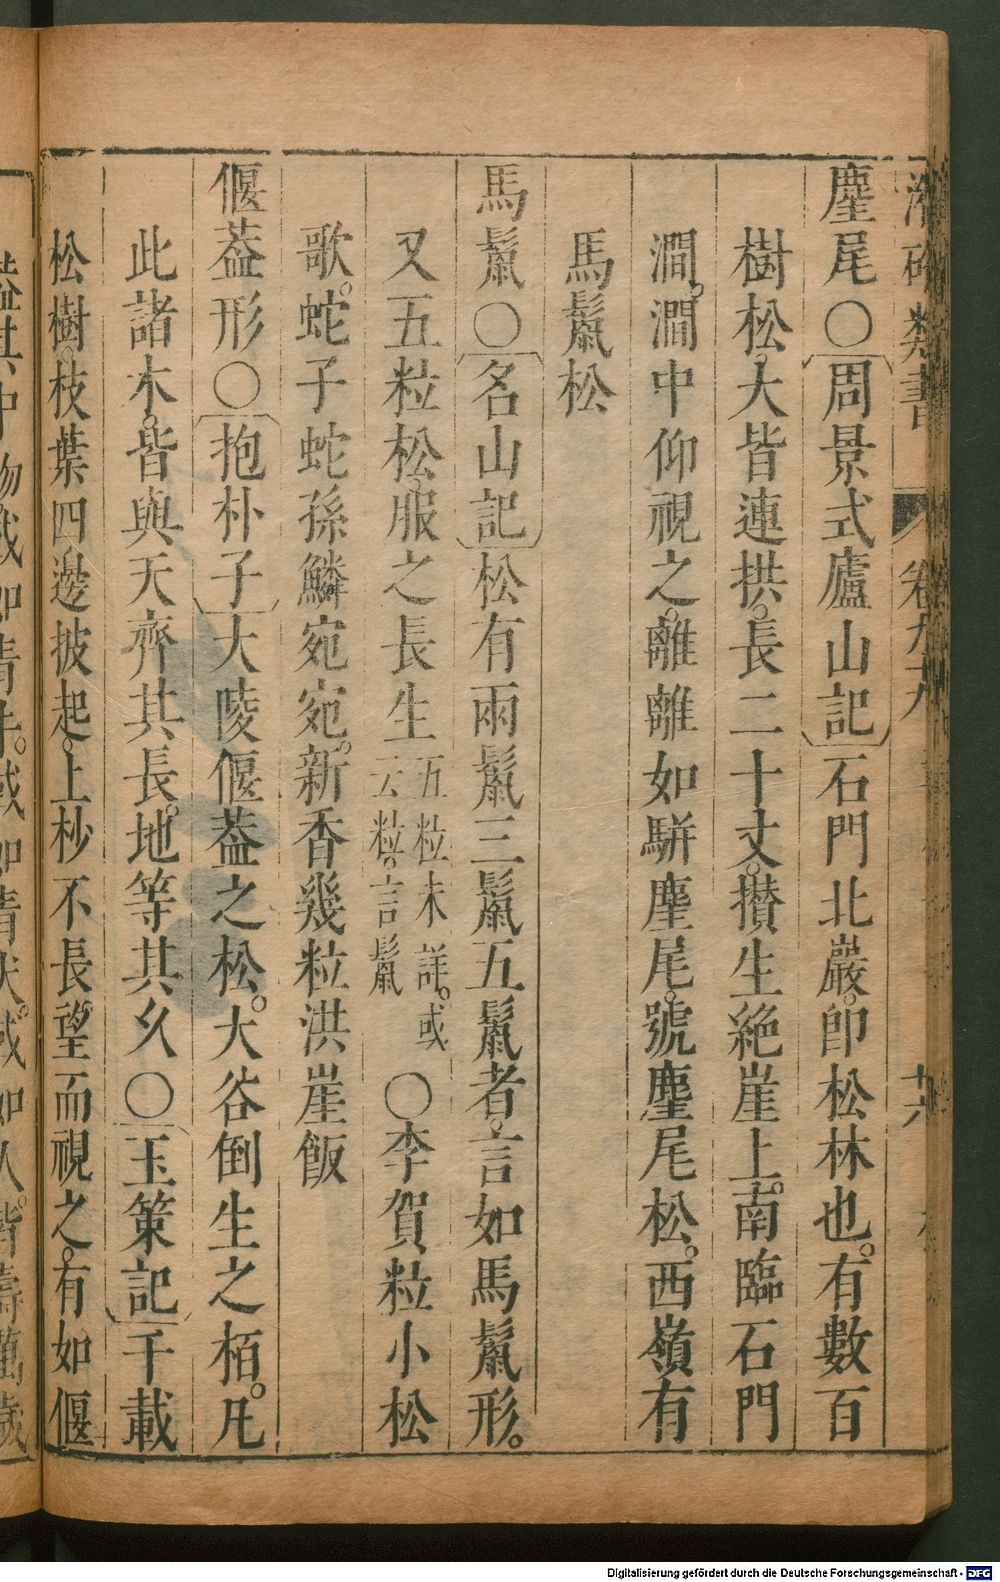 潛確類書 卷九十
塵尾〇周景式廬山記石門北巖。即松林也。有數百
樹松。大皆連拱。長二十丈。攢生絕崖上。南臨石門
澗。澗中仰視之。離離如駢麈尾。號麈尾松。西嶺有
馬鬣松
馬鬣〇名山記松有兩鬣三鬣五鬣者。言如馬鬣形。
又五粒松。服之長生五粒未詳。或云粒。言鬣〇李賀粒小松
歌。蛇子蛇孫鱗宛宛。新香幾粒洪崖飯
偃葢形〇抱朴子大陵偃葢之松。大谷倒生之栢。凡
此諸木。皆與天齊其長。地等其久〇玉策記千載
松樹。枝葉四邊披起。上杪不長。望而視之。有如偃
葢其中物或如青牛。或如青犬。或如人。皆壽萬歲
Digitalisierung gefördert durch die Deutsche Forschungsgemeinschaft - DFG